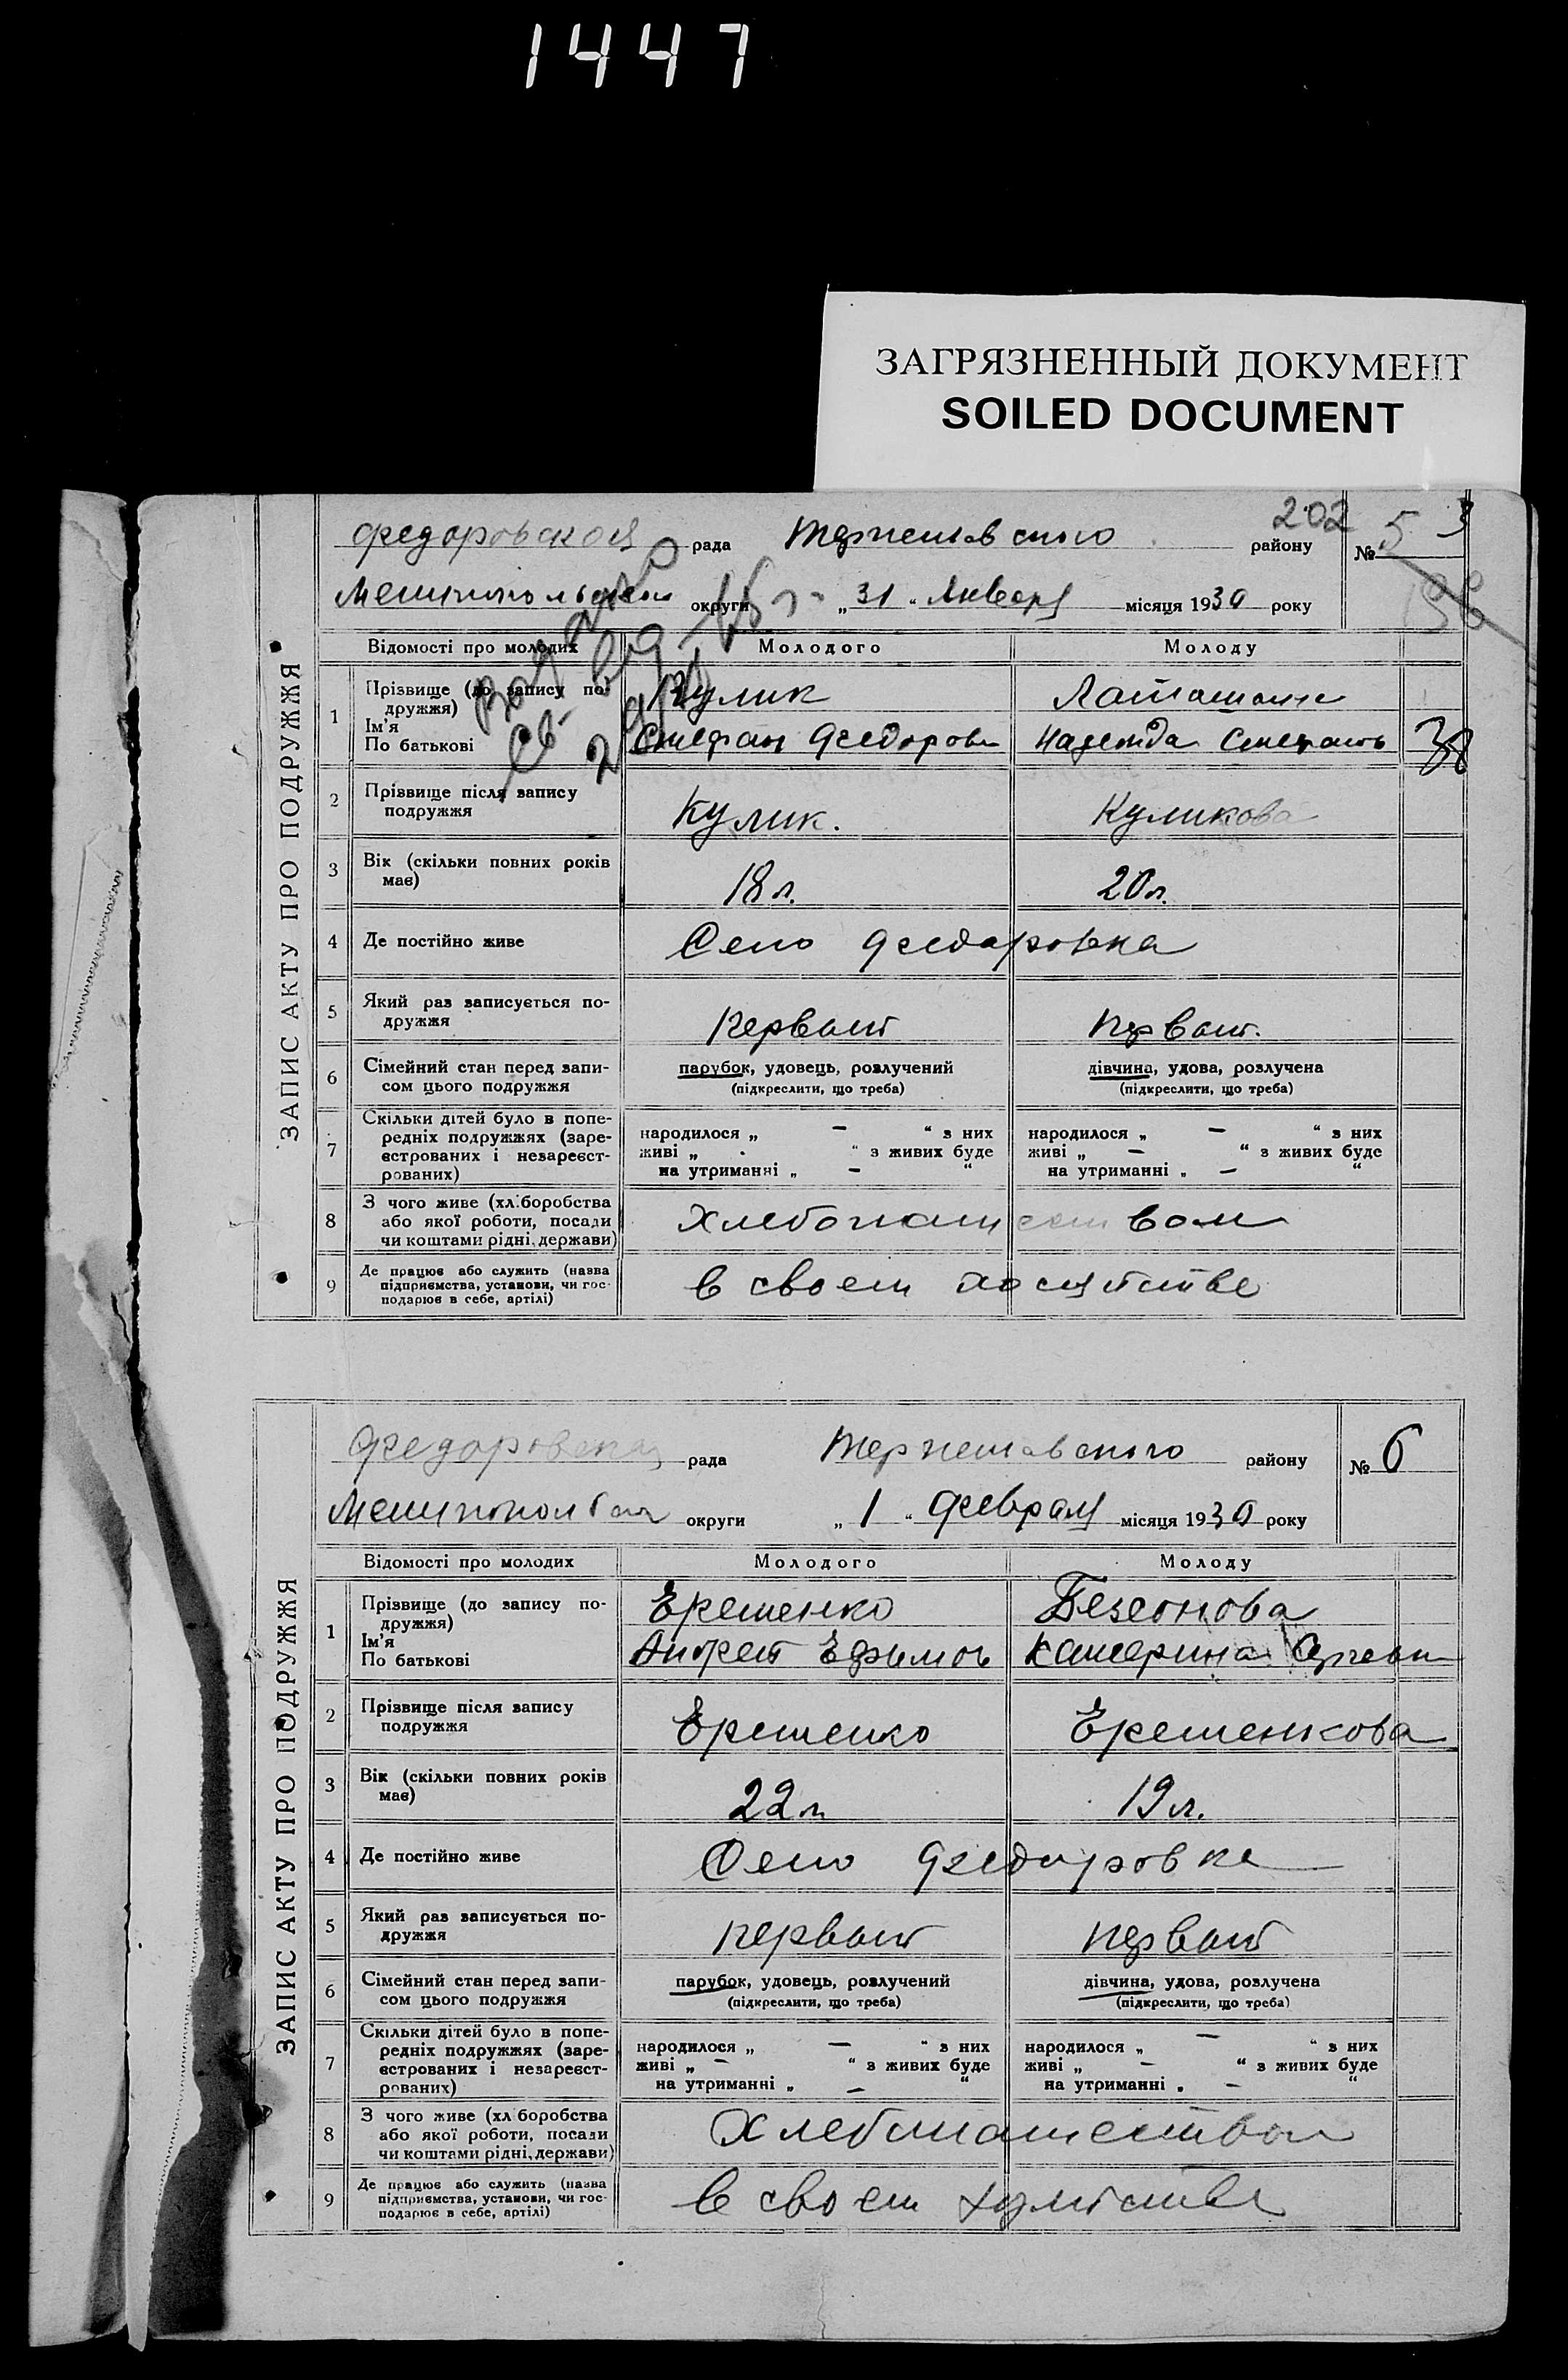 1447
ЗАГРЯЗНЕННЫЙ ДОКУМЕНТ
SOILED DOCUMENT
202
Федоровская рада района району № 5 3
округи „31“ Января місяця 1930 року
ЗАПИС АКТУ ПРО ПОДРУЖЖЯ
Відомості про молодих Молодого Молоду
1 Прізвище (до запису подружжя) Кулик
Ім'я
По батькові Стефан Федоров Надежда Степанов 38
2 Прізвище після запису подружжя Кулик. Куликова
3 Вік (скільки повних років має) 18 л. 20 л.
4 Де постійно живе Село Федоровка
5 Який раз записується подружжя первый первый.
6 Сімейний стан перед записом цього подружжя парубок, удовець, розлучений дівчина, удова, розлучена
(підкреслити, що треба) (підкреслити, що треба)
7 Скільки дітей було в попередніх подружжях (зареєстрованих і незареєстрованих) народилося „ — “ з них народилося „ — “ з них
живі „ “ з живих буде живі „ — “ з живих буде
на утриманні „ — “ на утриманні „ — “
8 З чого живе (хліборобства або якої роботи, посади чи коштами рідні, держави) Хлебопашеством
9 Де працює або служить (назва підприємства, установи, чи господарює в себе, артілі) в своем
ЗАПИС АКТУ ПРО ПОДРУЖЖЯ
Федоровская рада району № 6
округи „1“ Февраля місяця 1930 року
Відомості про молодих Молодого Молоду
1 Прізвище (до запису подружжя) Ерешенко
Ім'я
По батькові Андрей Ефимов Катерина
2 Прізвище після запису подружжя Ерешенко Ерешенкова
3 Вік (скільки повних років має) 22 л 19 л.
4 Де постійно живе Село Федоровка
5 Який раз записується подружжя первый первый
6 Сімейний стан перед записом цього подружжя парубок, удовець, розлучений дівчина, удова, розлучена
(підкреслити, що треба) (підкреслити, що треба)
7 Скільки дітей було в попередніх подружжях (зареєстрованих і незареєстрованих) народилося „ — “ з них народилося „ — “ з них
живі „ — “ з живих буде живі „ — “ з живих буде
на утриманні „ — “ на утриманні „ — “
8 З чого живе (хліборобства або якої роботи, посади чи коштами рідні, держави) Хлебопашеством
9 Де працює або служить (назва підприємства, установи, чи господарює в себе, артілі) в своем